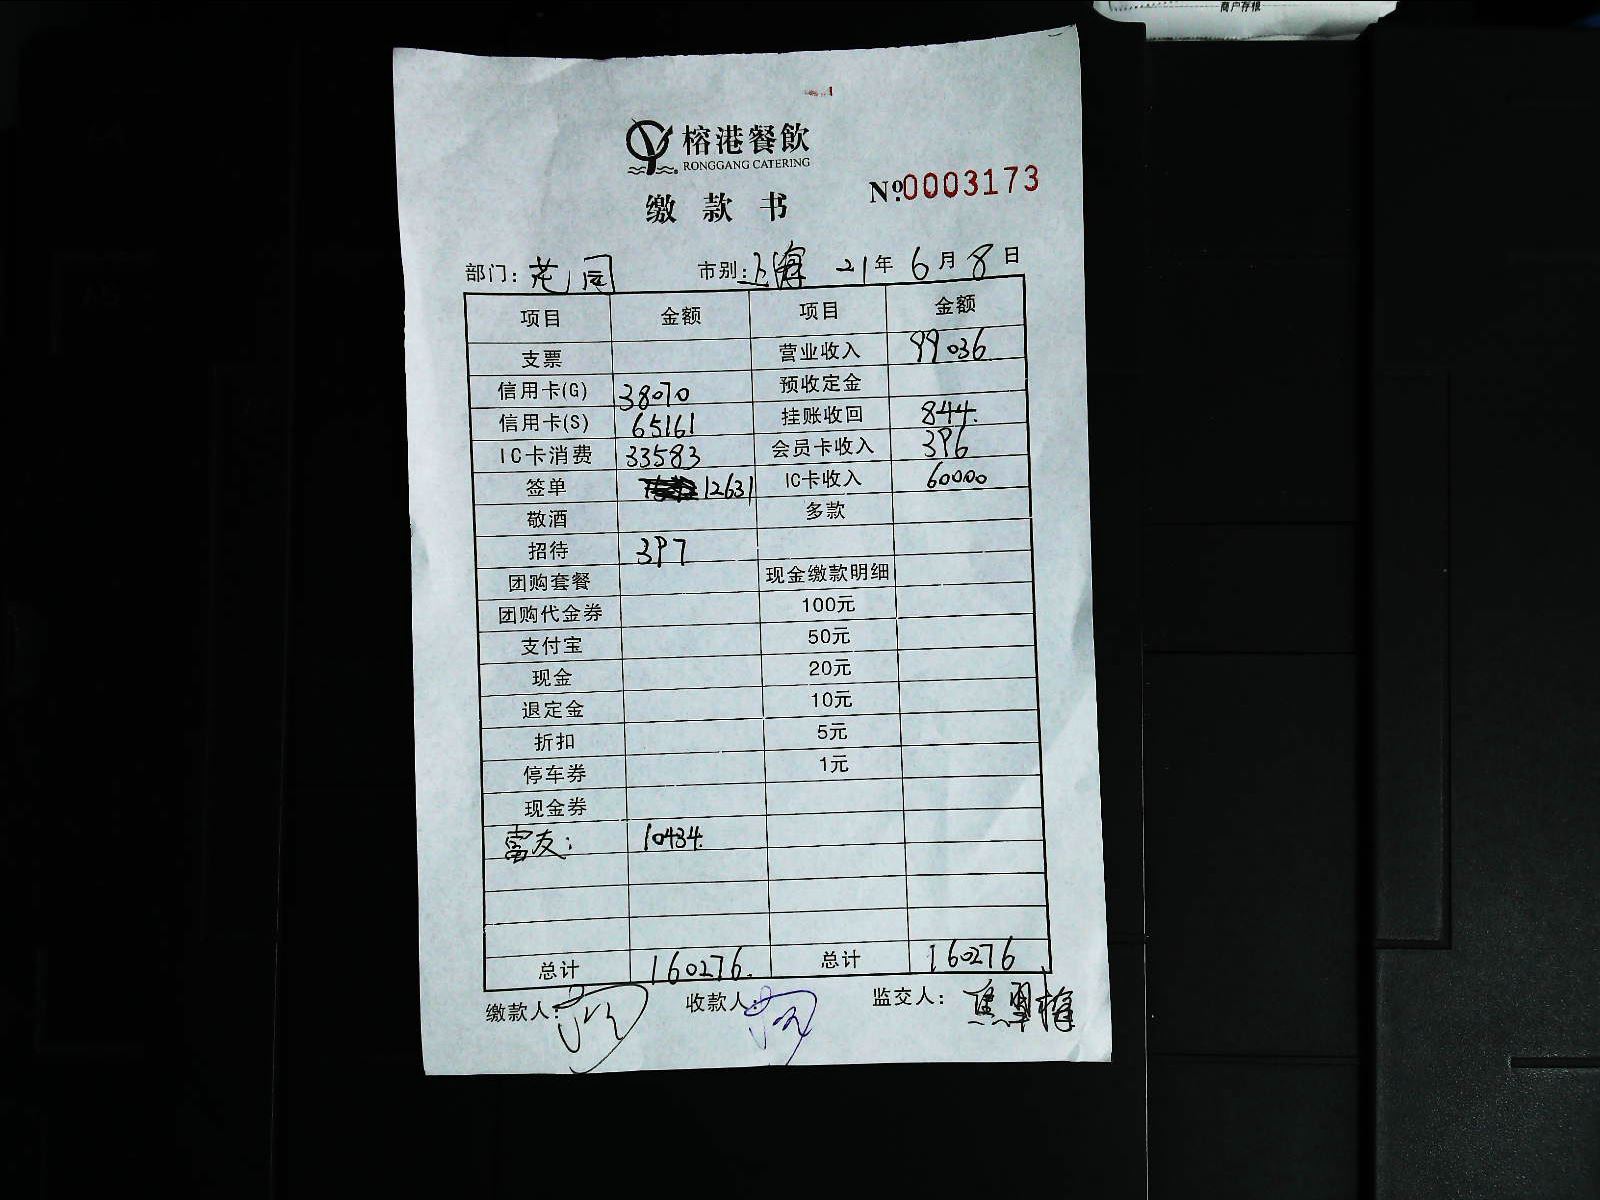 商户存根
榕港餐飲
RONGGANG CATERING
缴款书
№.0003173
部门:花园 市别:上海 21年6月8日
项目 金额 项目 金额
支票 营业收入 99036
信用卡(G) 38070 预收定金
信用卡(S) 65161 挂账收回 844.
IC卡消费 33583 会员卡收入 396
签单 12631 IC卡收入 60000
敬酒 多款
招待 397
团购套餐 现金缴款明细
团购代金券 100元
支付宝 50元
现金 20元
退定金 10元
折扣 5元
停车券 1元
现金券
富友: 10434.
总计 160276. 总计 160276
缴款人: 收款人: 监交人:焦翠梅